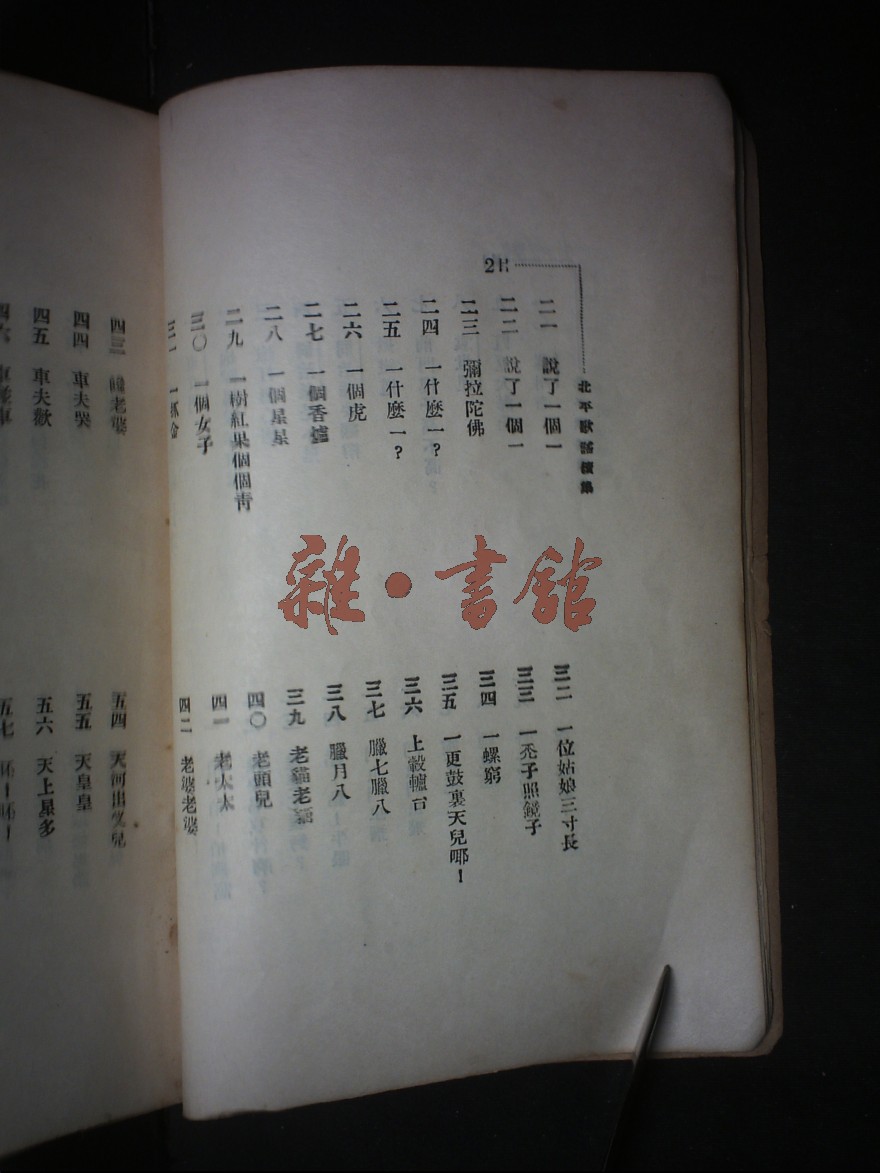 北平歌謠續集
2目
二一 說了一個一
二二 說了一個一
二三 彌拉陀佛
二四 一什麼一?
二五 一什麼一?
二六 一個虎
二七 一個香爐
二八 一個星星
二九 一樹紅果個個青
三〇 一個女子
三一 一抓金
三二 一位姑娘三寸長
三三 一禿子照鏡子
三四 一螺窮
三五 一更鼓裏天兒耶!
三六 上轂轤台
三七 臘七臘八
三八 臘月八
三九 老貓老貓
四〇 老頭兒
四一 老太太
四二 老婆老婆
四三 老婆
四四 車夫哭
四五 車夫歎
四六
五四 天河出叉兒
五五 天皇皇
五六 天上星多
五七 呸!呸!
雜·書館